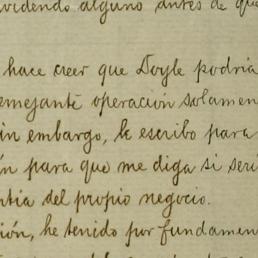 videndo alguno antes de que
hace creer que Doyle podria
emejante operación solamen
in embargo, le escribo para
n para que me diga si seri
ntia del propio negocio.
ión, he tenido por fundamen